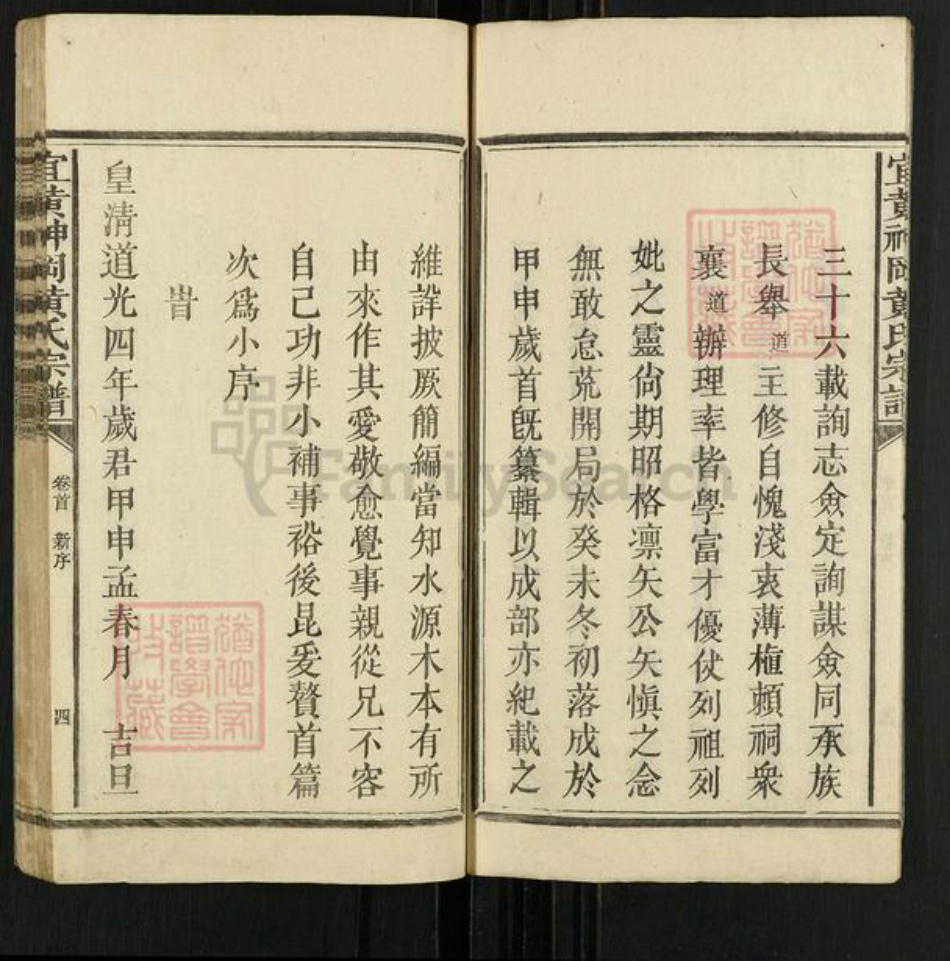 宜黄神岡黄氏宗譜
三十六載詢志僉定詢謀僉同承族
長舉道主修自愧淺衷薄植頼祠衆
襄道辦理率皆學富才優仗列祖列
妣之靈尙期昭格凛矢公矢愼之念
無敢怠荒開局於癸未冬初落成於
甲申歲首旣纂輯以成部亦紀載之
維詳披厥簡編當知水源木本有所
由來作其愛敬愈覺事親從兄不容
自己功非小補事裕後昆爰贅首篇
次爲小序
旹
皇淸道光四年歲君甲申孟春月 吉旦
宜黄神岡黄氏宗譜
卷首 新序
四
FamilySearch